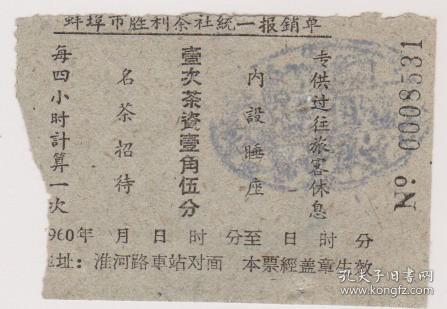 蚌埠市胜利茶社統一报銷单
专供过往旅客休息
内設睡座
壹次茶資壹角伍分
名茶招待
每四小时計算一次
№ 0008531
960年 月 日 时 分至 日 时 分
址：淮河路車站对面 本票經盖章生效
孔夫子旧书网